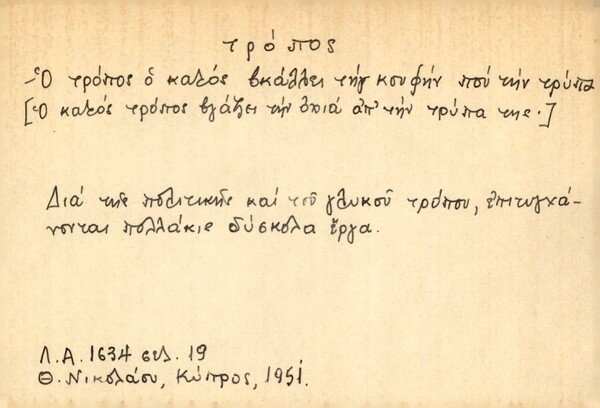 τρόπος
- Ὁ τρόπος ὁ καλός βκάλλει τήγ κουφήν πού τήν τρύπα
[Ὁ καλός τρόπος βγάζει τήν ὀχιά ἀπ' τήν τρύπα της.]
Διά τῆς πολιτικῆς καί τοῦ γλυκοῦ τρόπου, ἐπιτυγχά-
νονται πολλάκις δύσκολα ἔργα.
Λ.Α. 1634 σελ. 19
Θ. Νικολάου, Κύπρος, 1951.